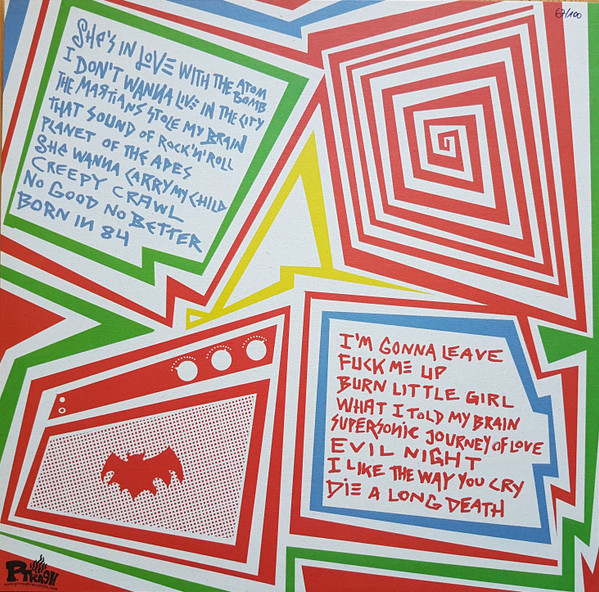 69/100
SHE'S IN LOVE WITH THE ATOM BOMB
I DON'T WANNA LIVE IN THE CITY
THE MARTIANS STOLE MY BRAIN
THAT SOUND OF ROCK'N'ROLL
PLANET OF THE APES
SHE WANNA CARRY MY CHILD
CREEPY CRAWL
NO GOOD NO BETTER
BORN IN 84
I'M GONNA LEAVE
FUCK ME UP
BURN LITTLE GIRL
WHAT I TOLD MY BRAIN
SUPERSONIC JOURNEY OF LOVE
EVIL NIGHT
I LIKE THE WAY YOU CRY
DIE A LONG DEATH
P.TRASH